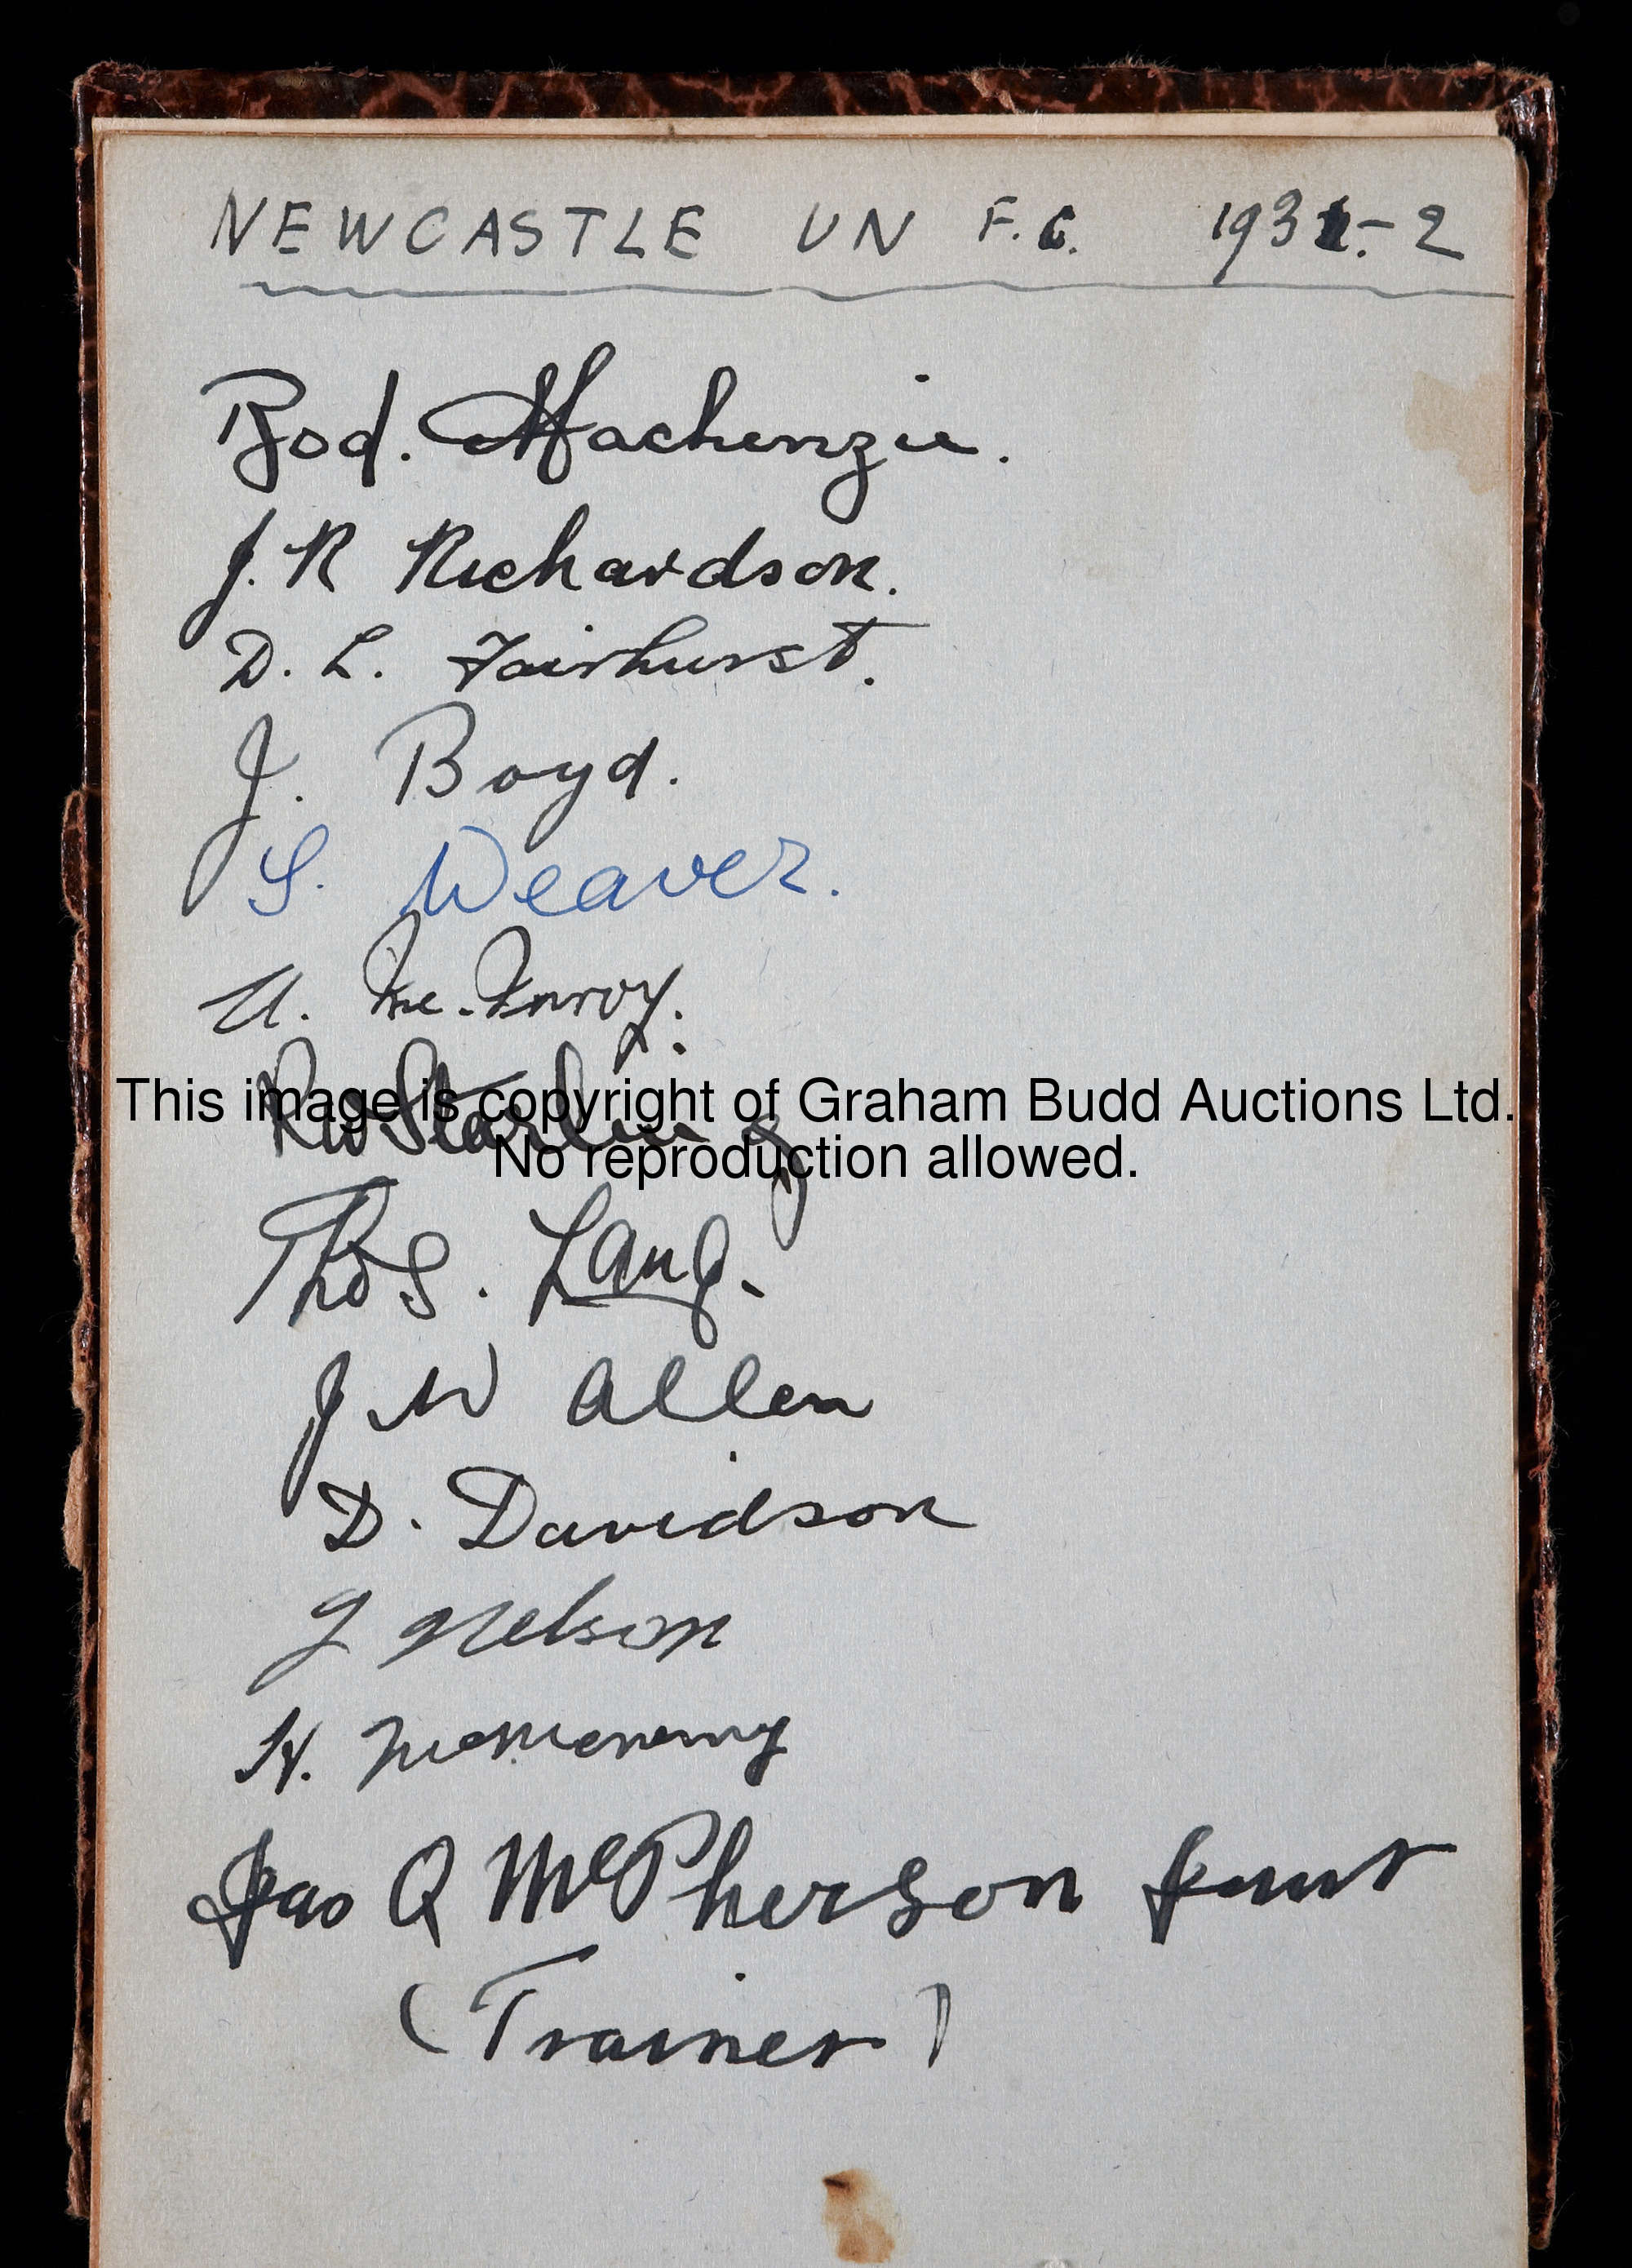 NEWCASTLE UN F.C. 1931-2
Rod. Mackenzie.
J. R Richardson.
D. L. Fairhurst.
J. Boyd.
S. Weaver.
A. Mc.Inroy.
This image is copyright of Graham Budd Auctions Ltd.
RW Starling
No reproduction allowed.
Thos. Lang.
J W Allen
D. Davidson
J Nelson
H. McMenemy
Jas Q McPherson Junr
(Trainer)